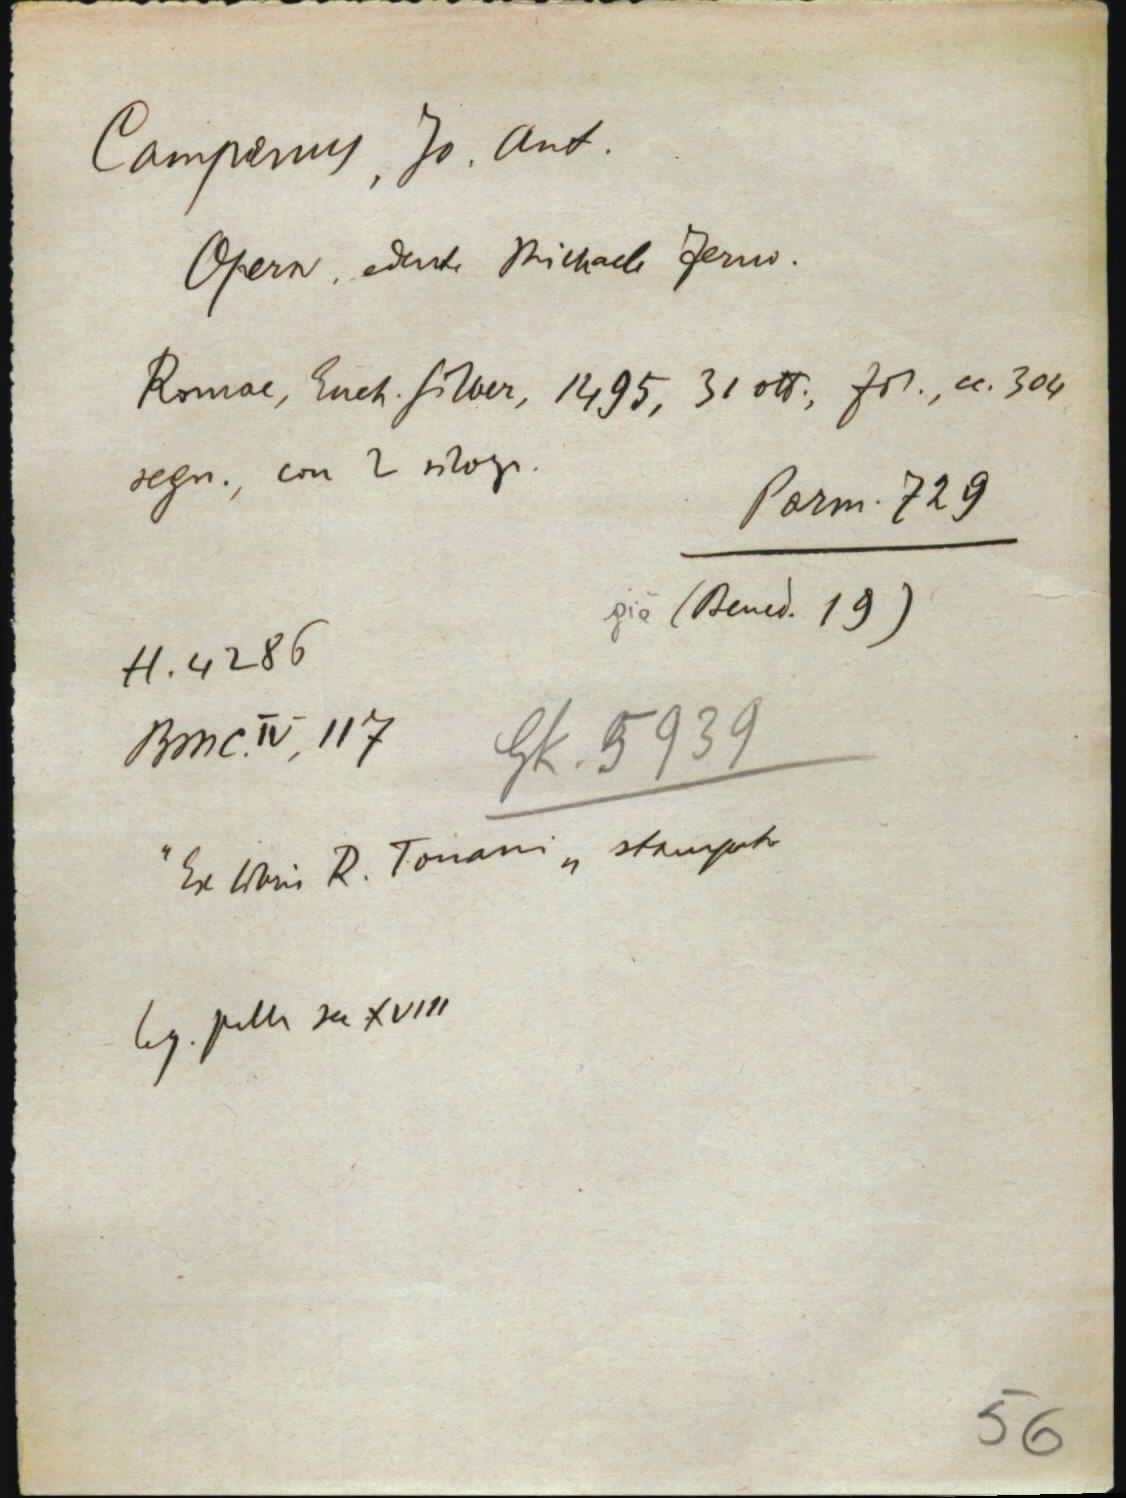 Campanus, Jo. Ant.
Opera, edente Michaele Ferno.
Romae, Euch. Silber, 1495, 31 ott., fol., cc. 304
segn., con 2 silogr.
Parm. 729
già (Bened. 19)
H. 4286
BMC. IV, 117
GK. 5939
"Ex libris R. Tonani„ stampato
Leg. pelle sec XVIII
56